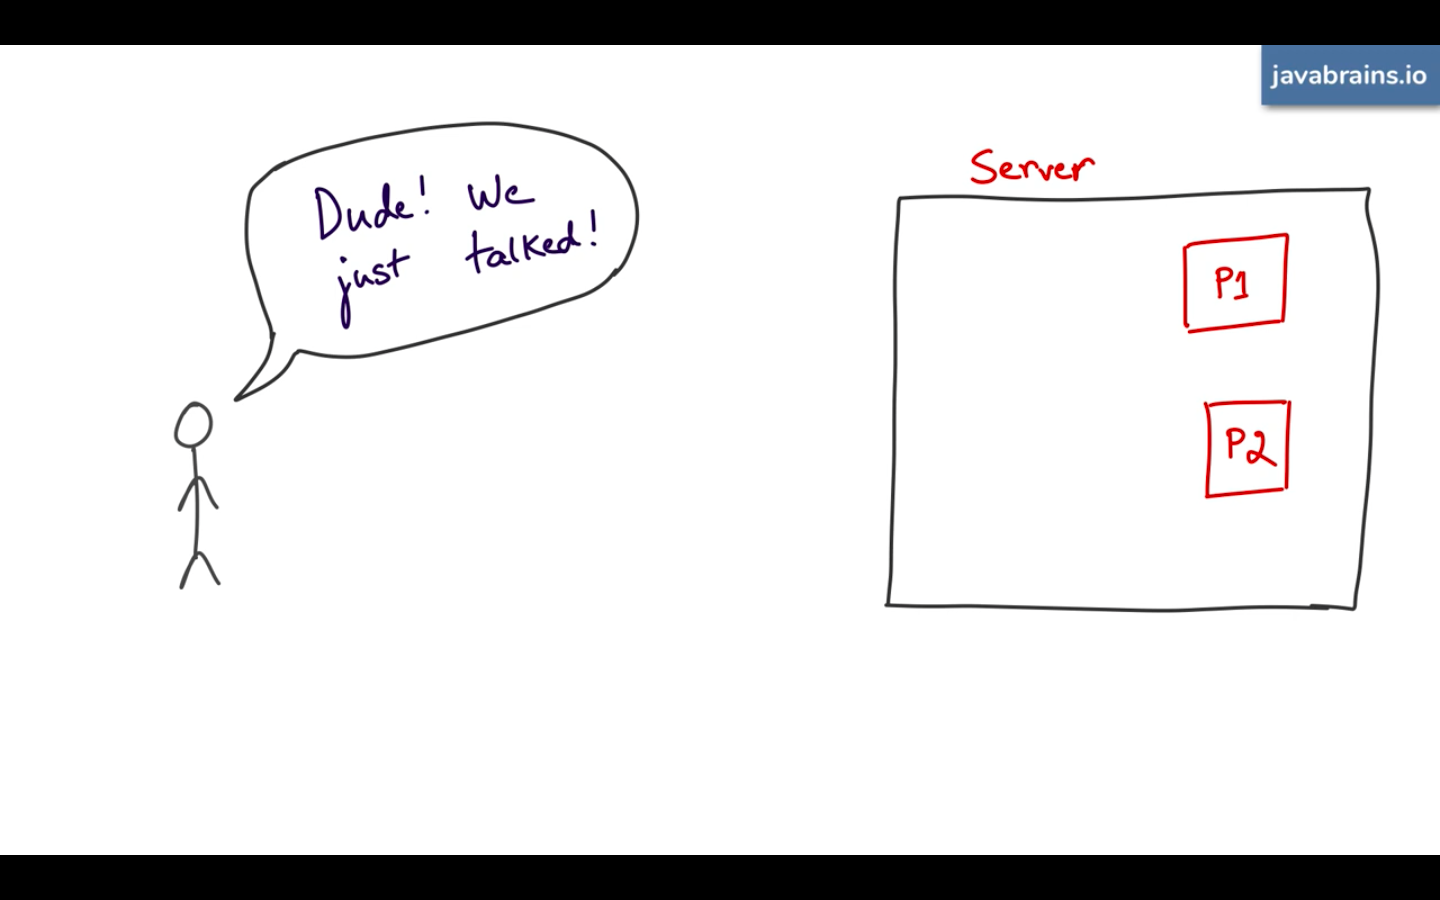 javabrains.io
Dude! We
just talked!
Server
P1
P2